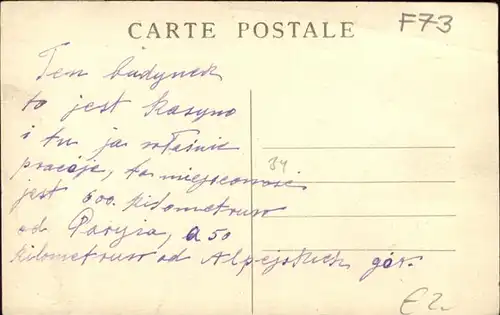 CARTE POSTALE
F73
Ten budynek
to jest kasyno
i tu ja właśnie
pracuje, ta miejscowość
jest 600. kilometruw
od Paryża, a 50
kilometruw od Alpejskich gór.
34
€2.